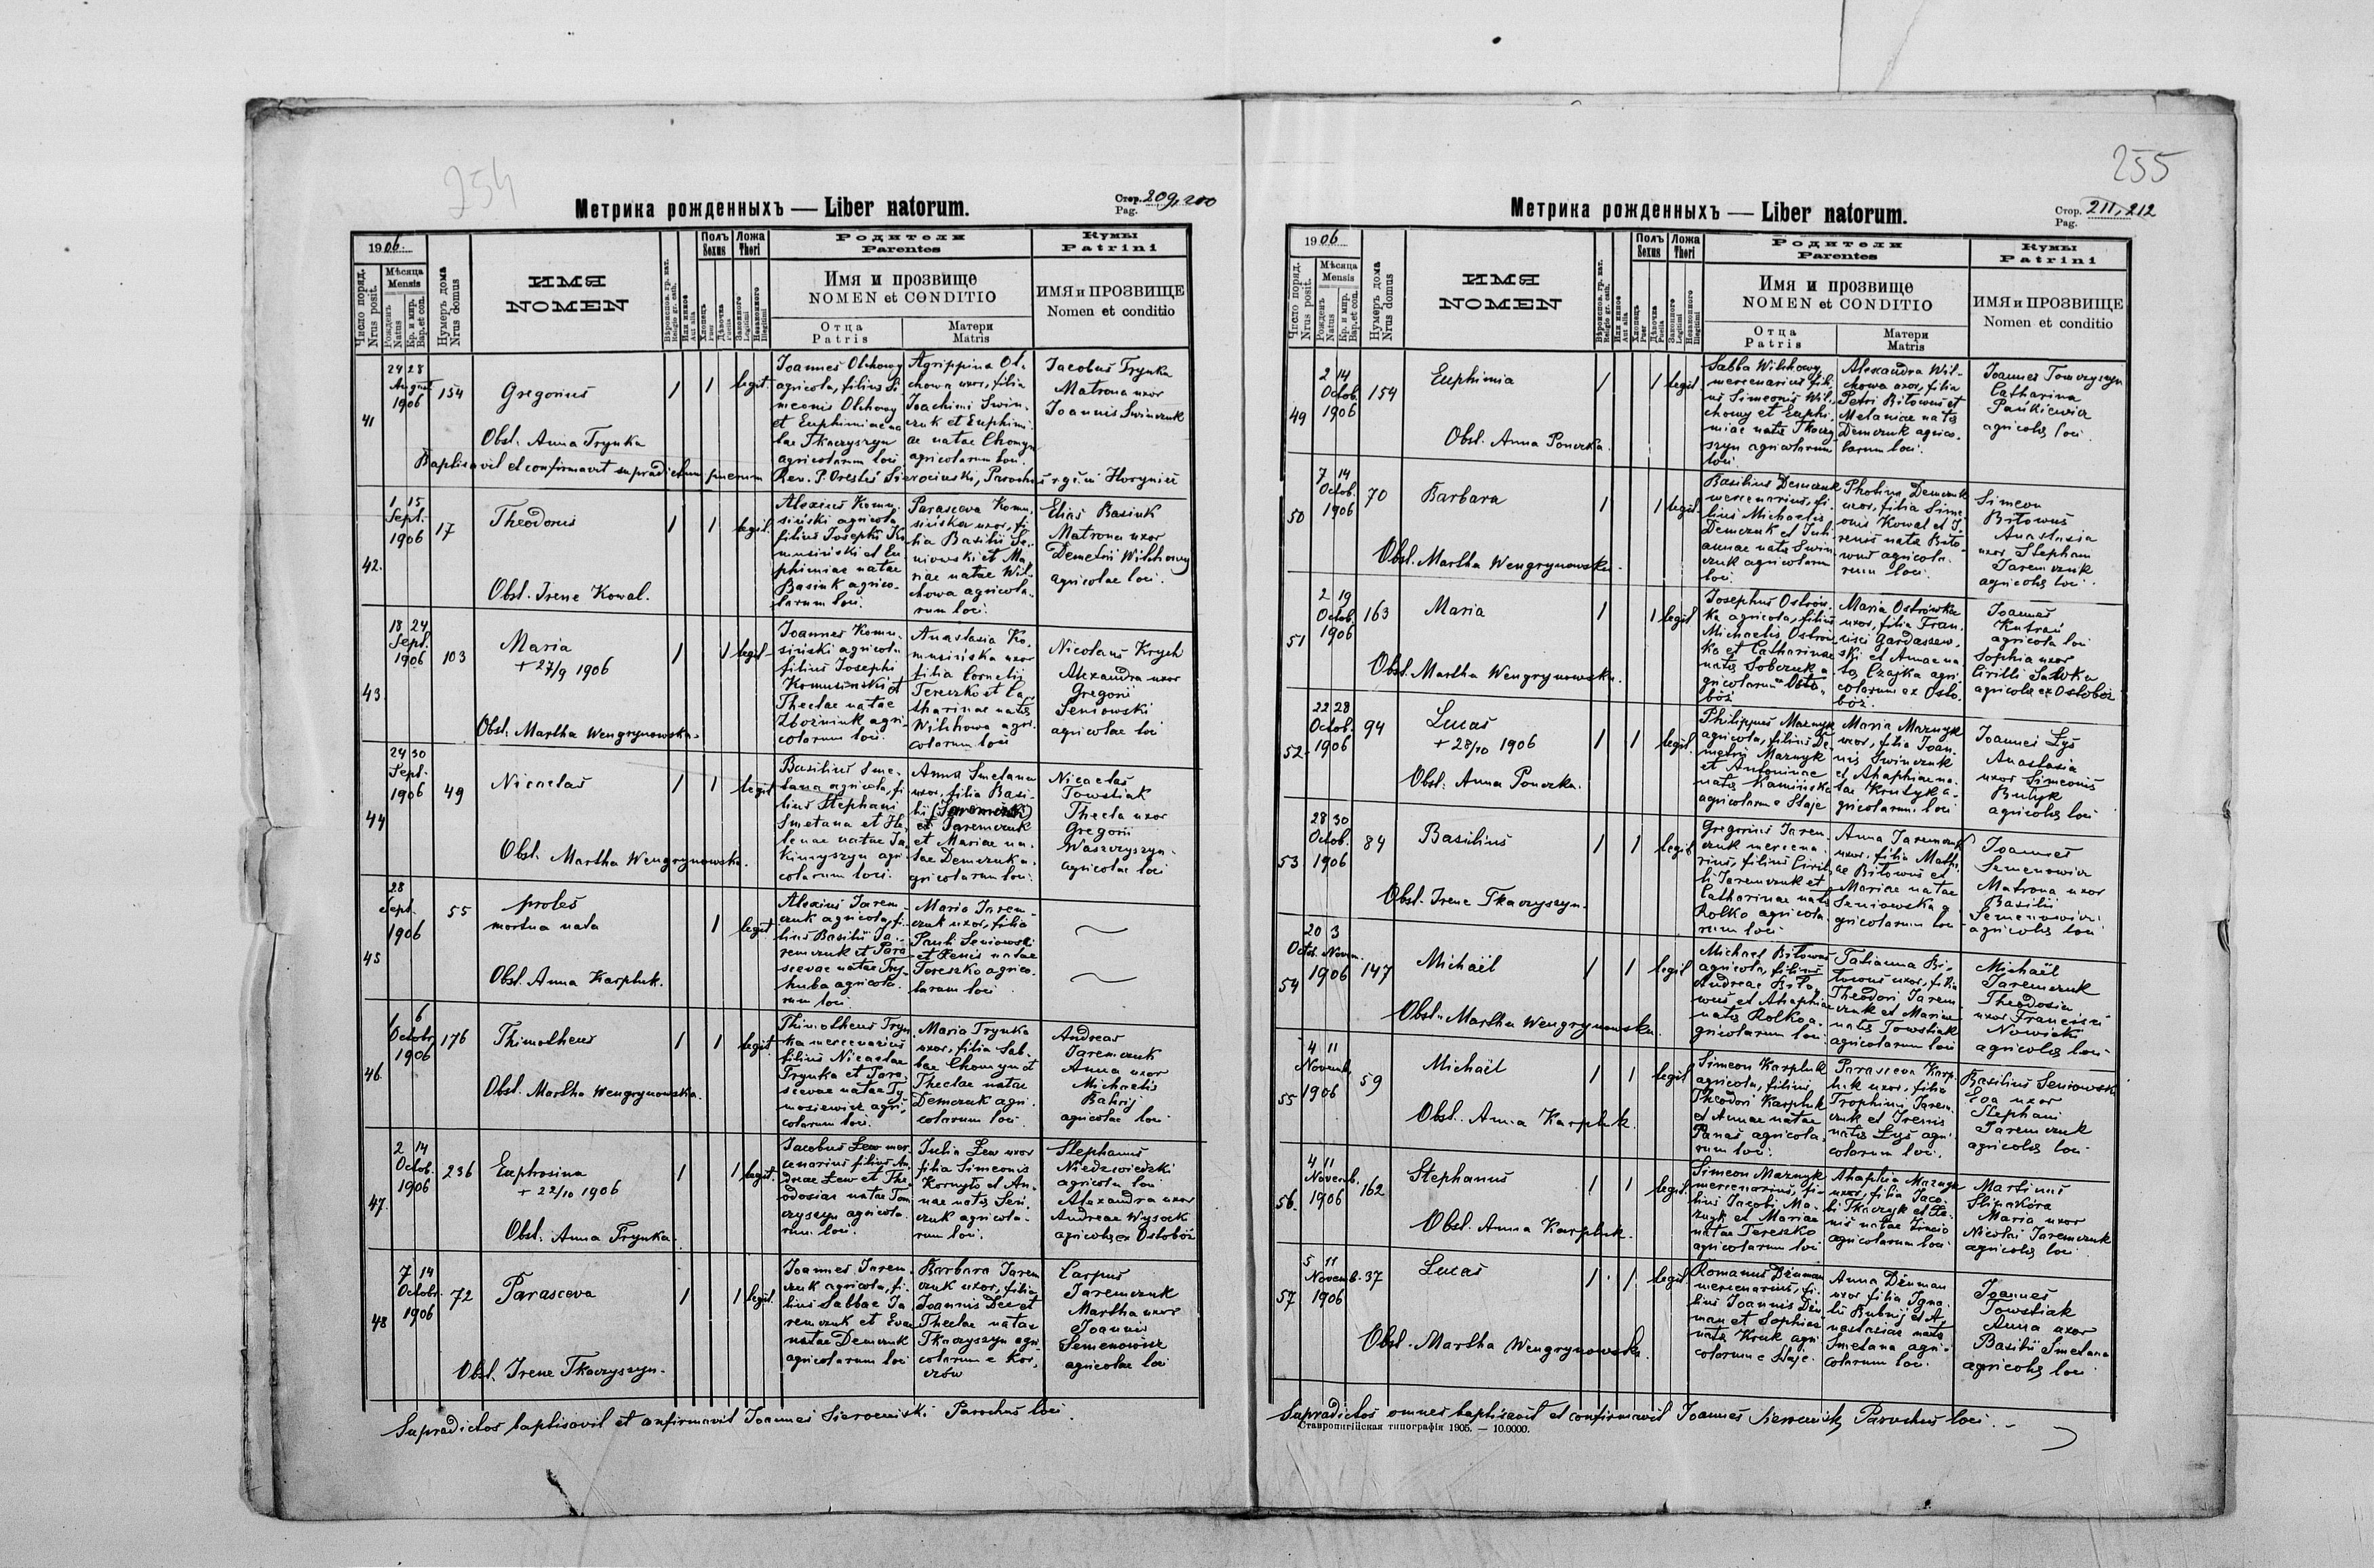 254
Метрика рожденныхъ — Liber natorum.
Стор. 209, 210
Pag.
1906
Число поряд.
Nrus posit.
Мѣсяца
Mensis
Рожденъ
Natus
Кр. и мир.
Bap. et con.
Нумеръ дома
Nrus domus
ИМЯ
NOMEN
Вѣроиспов. гр. кат.
Religio gr. cath.
Или инное
Aut alia
Полъ
Sexus
Хлопецъ
Puer
Дѣвочка
Puella
Ложа
Thori
Законного
Legitimi
Незаконного
Illegitimi
Родители
Parentes
Имя и прозвище
NOMEN et CONDITIO
Отца
Patris
Матери
Matris
Кумы
Patrini
ИМЯ и ПРОЗВИЩЕ
Nomen et conditio
41
24 28
August
1906
154
Gregorius
1 1 legit.
Obst. Anna Trynka
Joannes Olchowy
agricola, filius Si-
meonis Olchowy
et Euphimiae na-
tae Tkaczyszyn
agricolarum loci
Agrippina Ol-
chowa uxor, filia
Joachimi Swin-
czuk et Euphimi-
ae natae Chomyn
agricolarum loci.
Jacobus Trynka
Matrona uxor
Joannis Swinczuk
Baptisavit et confirmavit supradictum puerum Rev. P. Orestes Sierocinski, Parochus r. g. in Horyniec
42.
1 15
Sept.
1906
17
Theodorus
1 1 legit.
Obst. Irene Kowal.
Alexius Komu-
siński agricola
filius Josephi Ko-
musiński et Eu-
phimiae natae
Basiuk agrico-
larum loci.
Parasceva Komu-
sińska uxor, fi-
lia Basilii Se-
niowski et Ma-
riae natae Wil-
chowa agricola-
rum loci.
Elias Basiuk
Matrona uxor
Demetrii Wilchowy
agricolae loci.
43.
18 24
Sept.
1906
103
Maria
+ 27/9 1906
1 1 legit.
Obst. Martha Wengrynowska.
Joannes Komu-
siński agricola
filius Josephi
Komusiński et
Theclae natae
Zboźniuk agri-
colarum loci.
Anastasia Ko-
musińska uxor
filia Cornelii
Tereszko et Ca-
tharinae natae
Wilchowa agri-
colarum loci
Nicolaus Krych
Alexandra uxor
Gregorii
Seniowski
agricolae loci
44
24 30
Sept.
1906
49
Nicaetas
1 1 legit.
Obst. Martha Wengrynowska.
Basilius Sme-
tana agricola, fi-
lius Stephani
Smetana et He-
lenae natae Ja-
kimyszyn agri-
colarum loci.
Anna Smetana
uxor, filia Basi-
lii
et Jaremczuk
et Mariae na-
tae Demczuk a-
gricolarum loci.
Nicaetas
Towstiak
Thecla uxor
Gregorii
Waszczyszyn
agricolae loci
45
28
Sept.
1906
55
proles
mortua nata
1 legit.
Obst. Anna Karpluk.
Alexius Jarem-
czuk agricola, fi-
lius Basilii Ja-
remczuk et Para-
scevae natae Try-
huba agricola-
rum loci.
Maria Jarem-
czuk uxor, filia
Pauli Seniowski
et Xenis natae
Tereszko agrico-
larum loci
46.
1 6
Octobr.
1906
176
Thimotheus
1 1 legit.
Obst. Martha Wengrynowska.
Thimotheus Tryn-
ka mercenarius
filius Nicaetae
Trynka et Para-
scevae natae Ty-
mosiewicz agri-
colarum loci.
Maria Trynka
uxor, filia Sab-
bae Chomyn et
Theclae natae
Demczuk agri-
colarum loci.
Andreas
Jaremczuk
Anna uxor
Michaelis
Bahrij
agricolae loci
47.
2 14
Octob.
1906
236
Euphrosina
+ 22/10 1906
1 1 legit.
Obst. Anna Trynka.
Jacobus Lew mer-
cenarius filius An-
dreae Lew et The-
odosiae natae Tom-
czyszyn agricola-
rum loci.
Julia Lew uxor
filia Simeonis
Kornyto et An-
nae natae Sen-
czuk agricola-
rum loci.
Stephanus
Niedzwiedzki
agricola loci
Alexandra uxor
Andreae Wysocki
agricolae ex Ostobóz
48
7 14
Octobr.
1906
72
Parasceva
1 1 legit.
Obst. Irene Tkaczyszyn.
Joannes Jarem-
czuk agricola, fi-
lius Sabbae Ja-
remczuk et Evae
natae Demczuk
agricolarum loci
Barbara Jarem-
czuk uxor, filia
Joannis Dec et
Theclae natae
Tkaczyszyn agri-
colarum e Kor-
czów
Carpus
Jaremczuk
Martha uxor
Joannis
Semenowicz
agricolae loci
Supradictos baptisavit et confirmavit Joannes Sierocinski Parochus loci.
255
Метрика рожденныхъ — Liber natorum.
Стор. 211, 212
Pag.
1906
Число поряд.
Nrus posit.
Мѣсяца
Mensis
Рожденъ
Natus
Кр. и мир.
Bap. et con.
Нумеръ дома
Nrus domus
ИМЯ
NOMEN
Вѣроиспов. гр. кат.
Religio gr. cath.
Или инное
Aut alia
Полъ
Sexus
Хлопецъ
Puer
Дѣвочка
Puella
Ложа
Thori
Законного
Legitimi
Незаконного
Illegitimi
Родители
Parentes
Имя и прозвище
NOMEN et CONDITIO
Отца
Patris
Матери
Matris
Кумы
Patrini
ИМЯ и ПРОЗВИЩЕ
Nomen et conditio
49
2 14
Octob.
1906
159
Euphimia
1 1 legit.
Obst. Anna Ponczka.
Sabba Wilchowy
mercenarius fili-
us Simeonis Wil-
chowy et Euphi-
miae natae Tkaczy-
szyn agricolarum
loci.
Alexandra Wil-
chowa uxor, filia
Petri Bitowus et
Melaniae natae
Demczuk agrico-
larum loci.
Joannes Tomczyszyn
Catharina
Pańkiewicz
agricolae loci.
50
7 14
Octob.
1906
70
Barbara
1 1 legit.
Obst. Martha Wengrynowska.
Basilius Demczuk
mercenarius, fi-
lius Michaelis
Demczuk et Juli-
annae natae Swin-
czuk agricolarum
loci.
Photina Demczuk
uxor, filia Sime-
onis Kowal et I-
renis natae Bito-
wus agricola-
rum loci.
Simeon
Bitowus
Anastasia
uxor Stephani
Jaremczuk
agricolae loci.
51
2 19
Octob.
1906
163
Maria
1 1 legit.
Obst. Martha Wengrynowska.
Josephus Ostrow-
ka agricola, filius
Michaelis Ostrow-
ka et Catharinae
natae Sobczuk a-
gricolarum ex Osto-
bóz
Maria Ostrówka
uxor, filia Fran-
cisci Gardaszew-
ski et Annae na-
tae Czajka agri-
colarum ex Osto-
bóz.
Joannes
agricola loci
Sophia uxor
Cirilli Sawka
agricolae ex Ostoboz
52.
22 28
Octob.
1906
94
Lucas
+ 28/10 1906
1 1 legit.
Obst. Anna Ponczka.
Philippus Maznyk
agricola, filius De-
metrii Maznyk
et Antoninae
natae Kaminska
agricolarum e Staje
Maria Maznyk
uxor, filia Joan-
nis Swinczuk
et Ahaphiae na-
tae Krutyk a-
gricolarum loci
Joannes Łyś
Anastasia
uxor Simeonis
Butyk
agricolae loci
53
28 30
Octob.
1906
84
Basilius
1 1 legit.
Obst. Irene Tkaczyszyn.
Gregorius Jarem-
czuk mercena-
rius, filius Ciril-
li Jaremczuk et
Catharinae natae
Rolko agricola-
rum loci
Anna Jaremczuk
uxor, filia Matth-
ae Bitowus et
Mariae natae
Seniowska a-
gricolarum loci
Joannes
Semenowicz
Matrona uxor
Basilii
Semenowicz
agricolae loci
54
20 3
Octob. Novem.
1906
147
Michaël
1 1 legit
Obst. Martha Wengrynowska.
Michael Bitowus
agricola, filius
Andreae Bito-
wus et Ahaphiae
natae Rolko a-
gricolarum loci.
Tatianna Bi-
towus uxor, filia
Theodori Jarem-
czuk et Mariae
natae Towstiak
agricolarum loci
Michaël
Jaremczuk
Theodosia
uxor Francisci
Nowicki
agricolae loci.
55
4 11
Novemb.
1906
59
Michaël
1 1 legit
Obst. Anna Karpluk.
Simeon Karpluk
agricola, filius
Theodori Karpluk
et Annae natae
Panas agricola-
rum loci.
Parasceva Karp-
luk uxor, filia
Trophimi Jarem-
czuk et Irenis
natae Łyś agri-
colarum loci.
Basilius Seniowski
Eva uxor
Stephani
Jaremczuk
agricolae loci
56.
4 11
Novemb.
1906
162
Stephanus
1 1 legit.
Obst. Anna Karpluk.
Simeon Maznyk
mercenarius, fi-
lius Jacobi Ma-
znyk et Mariae
natae Tereszko
agricolarum loci
Ahaphia Maznyk
uxor, filia Jaco-
bi Tkaczyk et Xe-
nis natae
agricolarum loci
Martinus
Maria uxor
Nicolai Jaremczuk
agricolae loci.
57
5 11
Novemb.
1906
37
Lucas
1 1 legit
Obst. Martha Wengrynowska.
Romanus Dźuman
mercenarius, fi-
lius Joannis Dźu-
man et Sophiae
natae Kruk agri-
colarum e Staje.
Anna Dźuman
uxor filia Igna-
tii Bubnij et A-
nastasiae natae
Smetana agri-
colarum loci.
Joannes
Towstiak
Anna uxor
Basilii Smetana
agricolae loci
Supradictos omnes baptisavit et confirmavit Joannes Sierocinski Parochus loci.
Ставропигійская типографія 1905. — 10.0000.